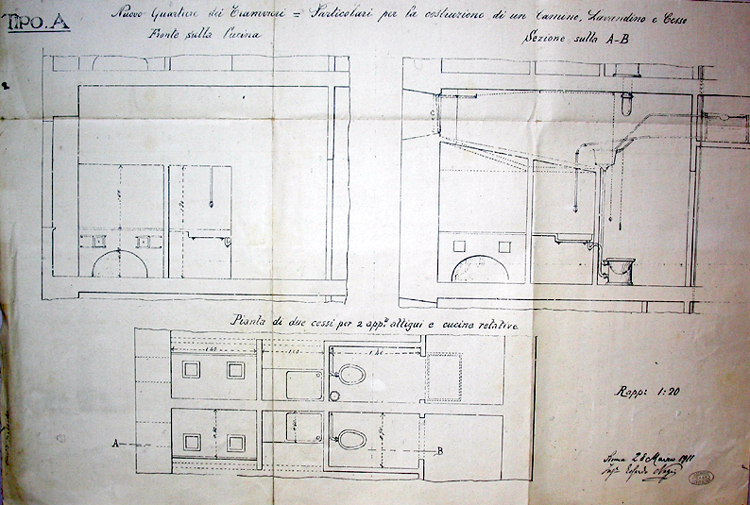 TIPO. A
Nuovo Quartiere dei Tramvieri = Particolari per la costruzione di un Camino, Lavandino e Cesso
Fronte sulla Cucina
Sezione sulla A-B
Pianta di due cessi per 2 app.ti attigui e cucine relative
A
B
Rapp: 1:20
Roma 28 Marzo 1911